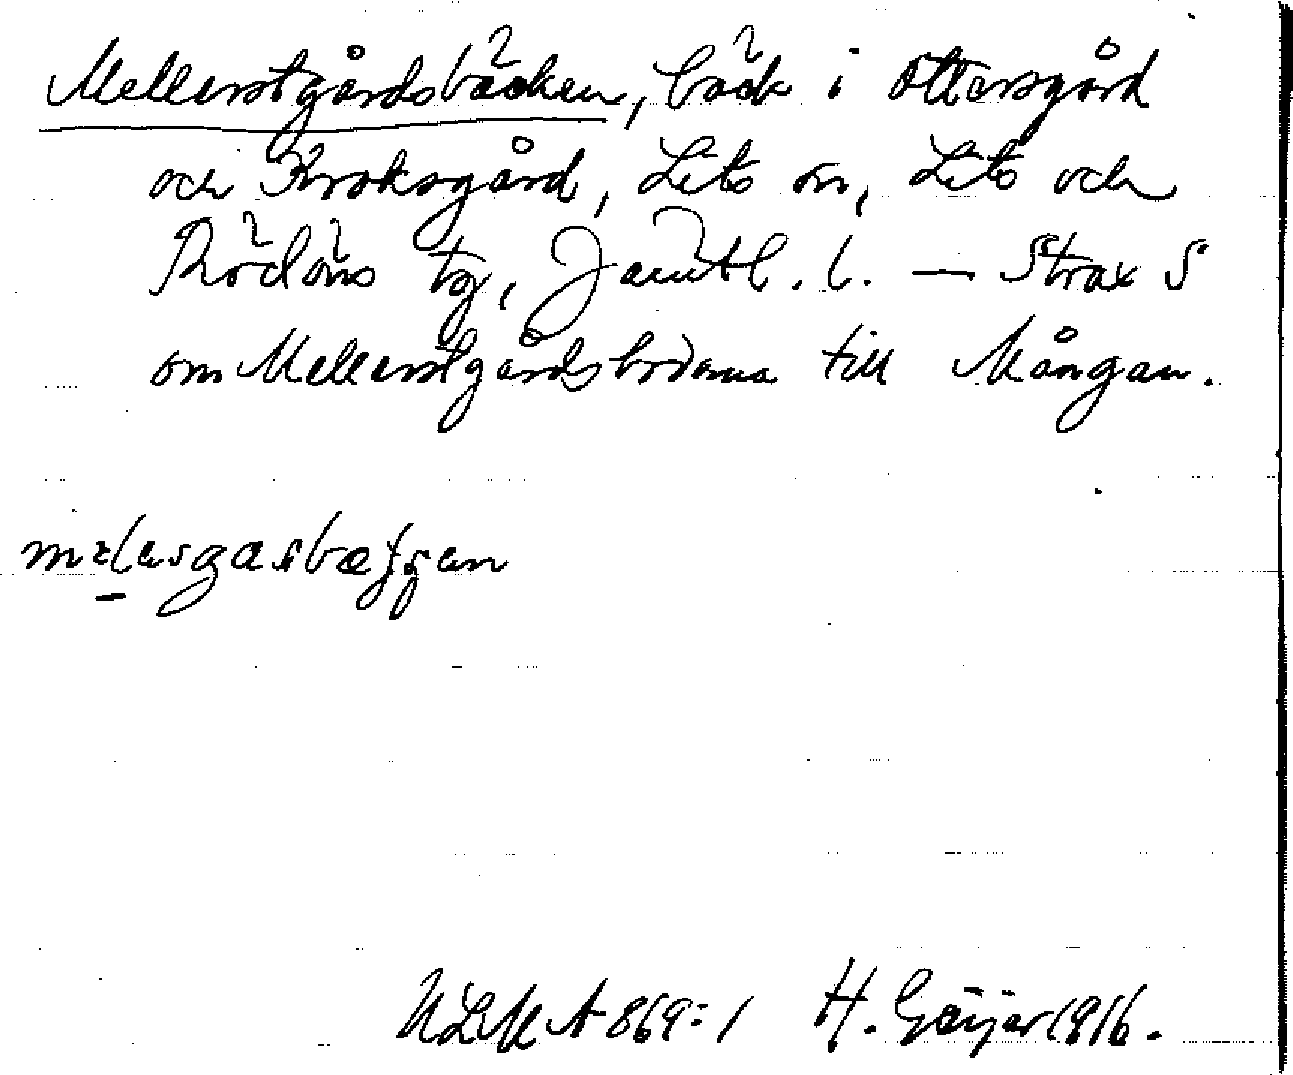 Mellerstgårdsbäcken, bäck i Ottersgård
och Kroksgård, Lits sn, Lits och
Rödöns tg, Jämtl. l. — Strax S
om Mellerstgårdsbodarna till Mångan.
H. Geijer 1916.
ULMA 869:1